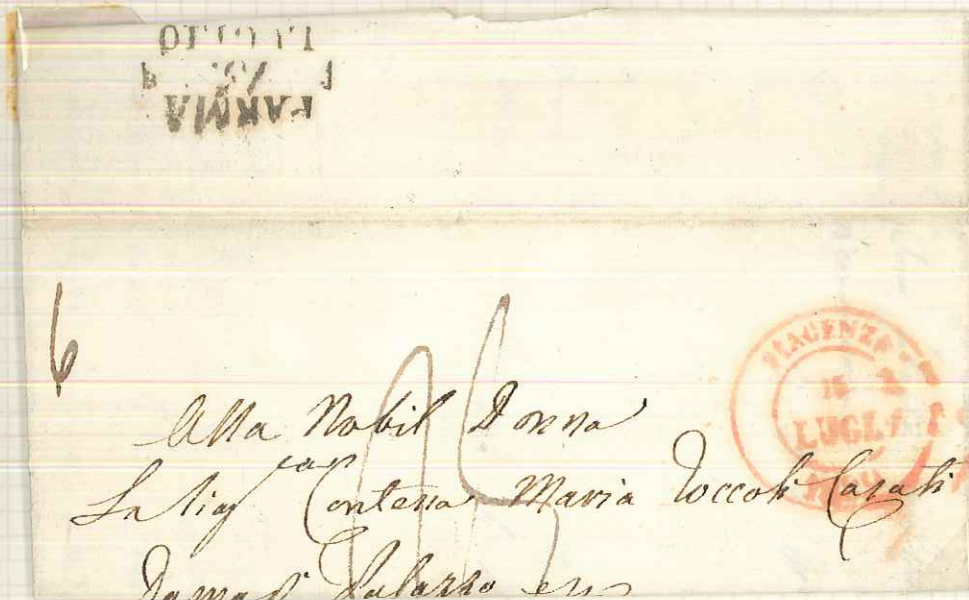 LUGLIO
PARMA
6
PIACENZA
LUGL
Alla Nobil Donna
La Sig.ra Contessa Maria Toccoli Casati
Dama di Palazzo